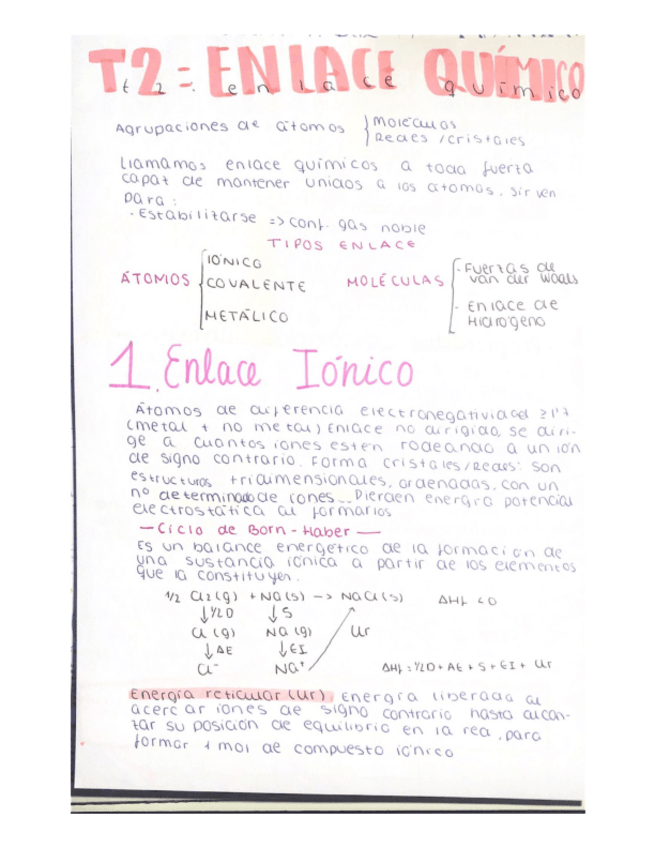 T2 = ENLACE QUÍMICO
t2: enlace químico
Agrupaciones de átomos } Moléculas
Redes / cristales
Llamamos enlace químicos a toda fuerza
capaz de mantener unidos a los átomos. Sirven
para:
- Estabilizarse => conf. gas noble
TIPOS ENLACE
ÁTOMOS { IÓNICO
COVALENTE
METÁLICO
MOLÉCULAS { - Fuerzas de
van der Waals
- Enlace de
Hidrógeno
1. Enlace Iónico
Átomos de diferencia electronegatividad ≥1'7
(metal + no metal) Enlace no dirigido, se diri-
ge a cuantos iones estén rodeando a un ión
de signo contrario. Forma cristales/redes: son
estructuras tridimensionales, ordenadas, con un
nº determinado de iones... Pierden energía potencial
electrostática al formarlos
— Ciclo de Born - Haber —
Es un balance energético de la formación de
una sustancia iónica a partir de los elementos
que la constituyen.
1/2 Cl2(g) + Na(s) -> NaCl(s) ΔHf <0
↓1/2D ↓S
Cl (g) Na (g) Ur
↓AE ↓EI
Cl⁻ Na⁺ ΔHf = 1/2D + AE + S + EI + Ur
Energía reticular (Ur). Energía liberada al
acercar iones de signo contrario hasta alcan-
zar su posición de equilibrio en la red, para
formar 1 mol de compuesto iónico